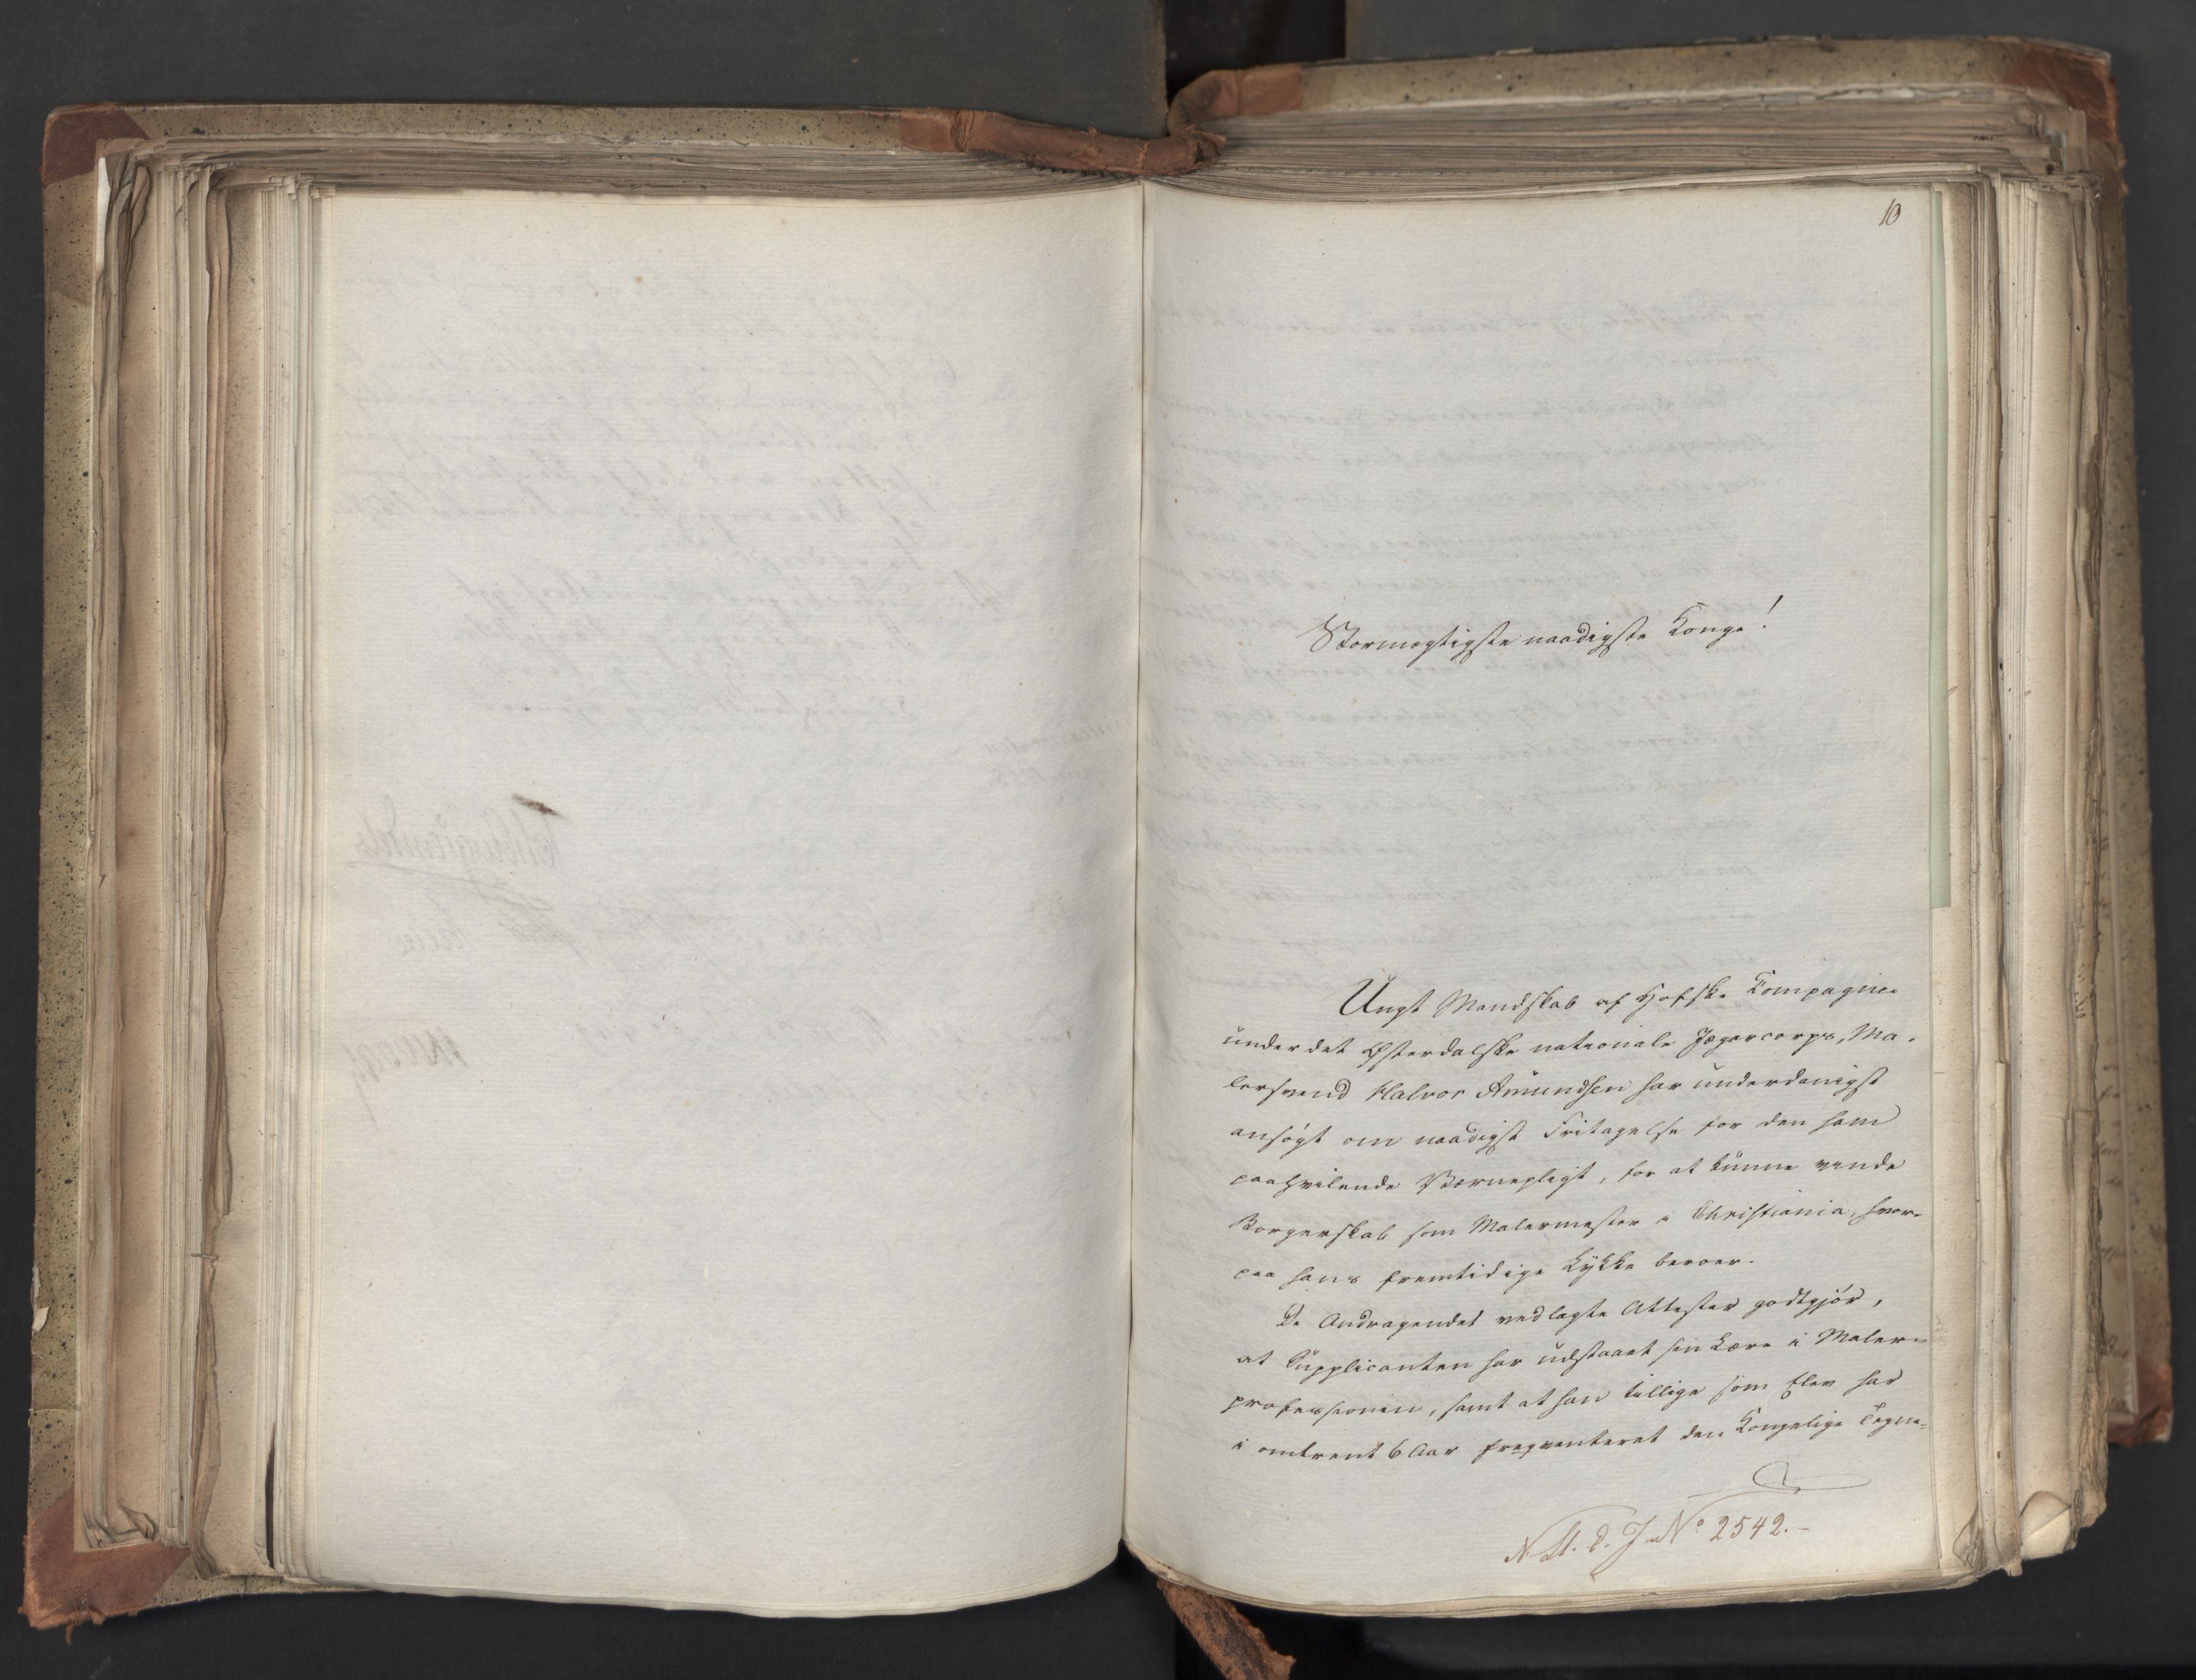 10
Stormægtigste naadigste Konge!
Ungt Mandskab af Hofske Kompagnie
under det Østerdalske nationale Jægercorps, Ma-
lersvend Halvor Amundsen har underdanigst
ansøgt om naadigst Fritagelse for den ham
paahvilende Værnepligt, for at kunne vinde
Borgerskab som Malermester i Christiania, hvor-
paa hans fremtidige Lykke beroer.
De Andragendet vedlagte Attester godtgjør,
at Supplicanten har udstaaet sin Lære i Maler-
professionen, samt at han tillige som Elev har
i omtrent 6 Aar freqventeret den Kongelige Tegne-
N. St. d. J. No 2542.-